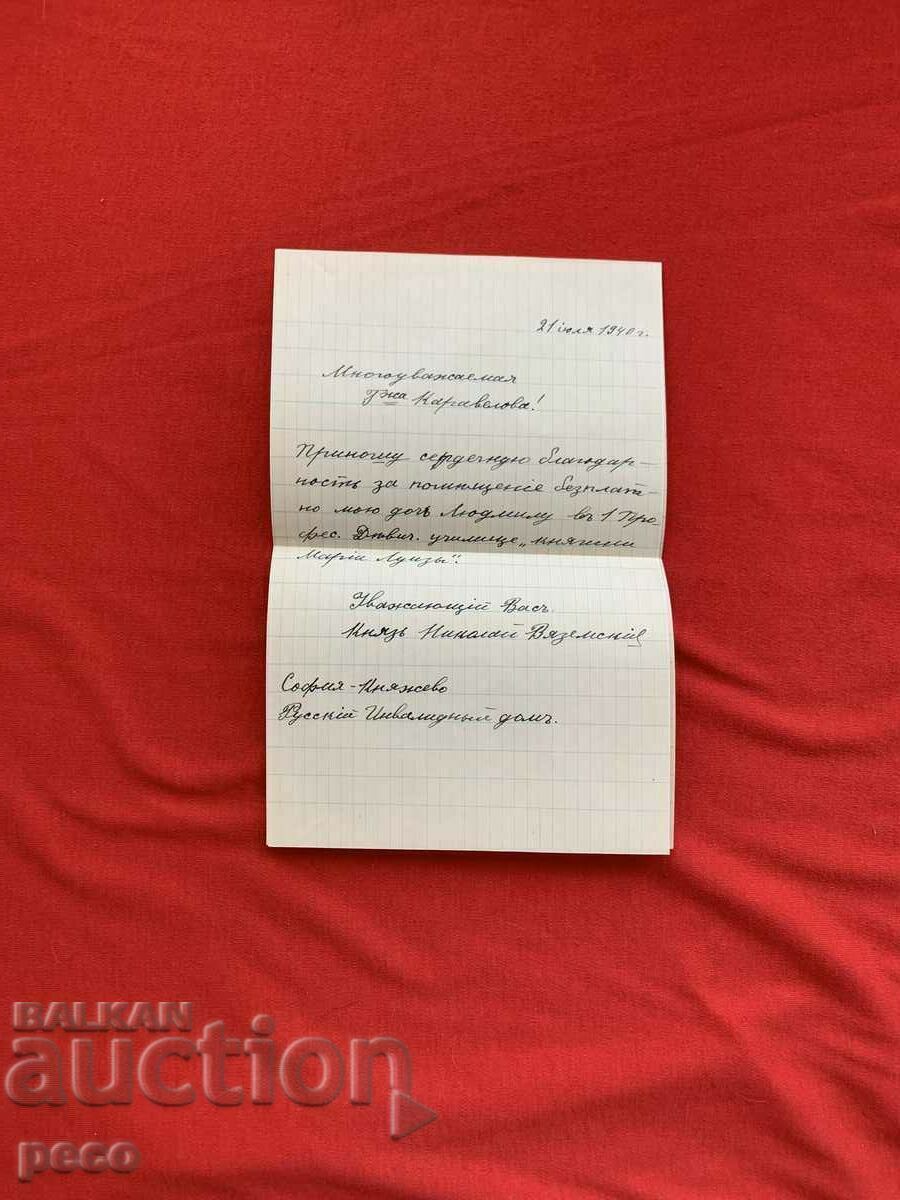 21 iюля 1940 г.
Многоуважаемая
Гжа Каравелова!
Приношу сердечную благодар-
ность за помѣщенiе безплат-
но мою дочь Людмилу въ 1 Про-
фес. Дѣвич. училище „княгини
Марiи Луизы".
Уважающiй Васъ
Князь Николай Вяземскiй
София-Княжево
Русскiй Инвалидный домъ.
BALKAN
auction
peco